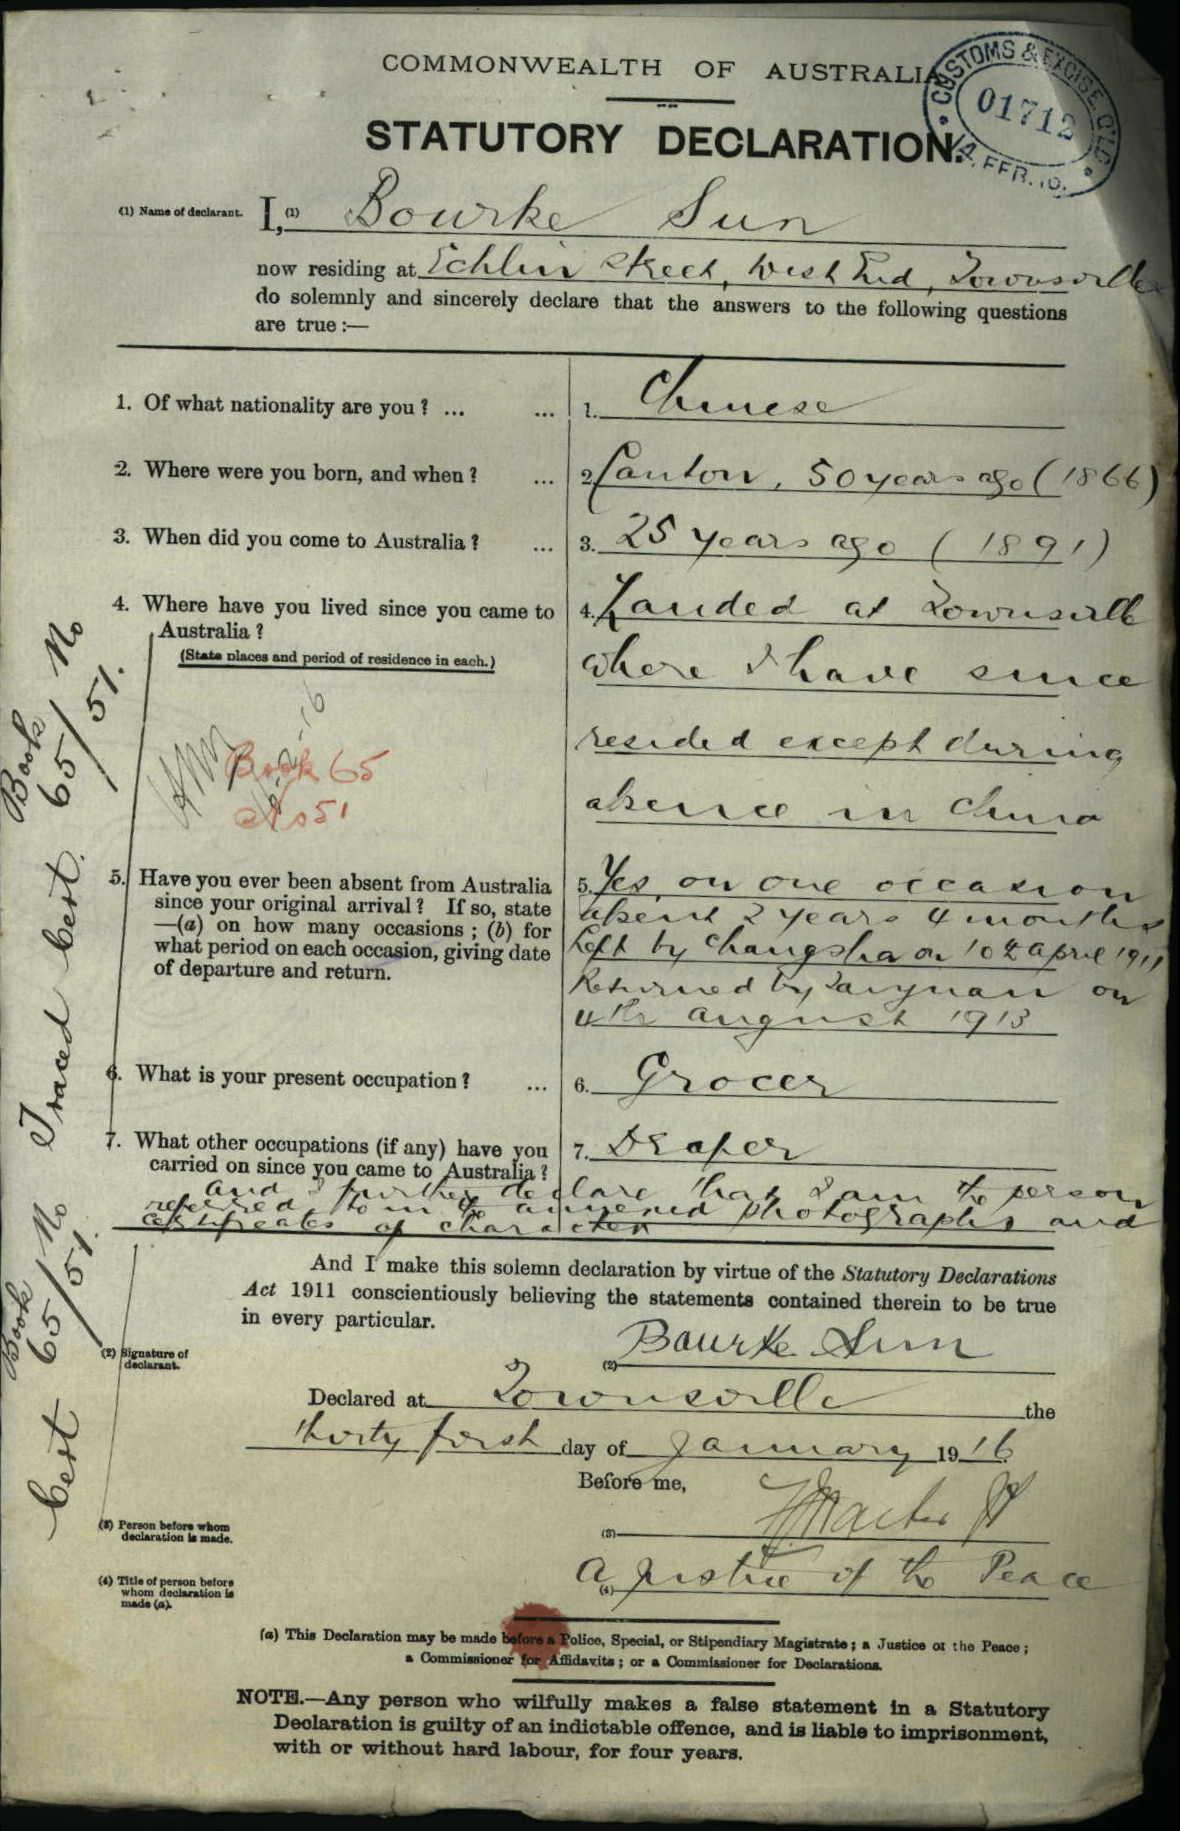 COMMONWEALTH OF AUSTRALIA
CUSTOMS & EXCISE, Q'LD
01712
14. FEB. 16.
STATUTORY DECLARATION.
(1) Name of declarant. I, (1) Bourke Sun
now residing at Echlin Street, West End, Townsville
do solemnly and sincerely declare that the answers to the following questions
are true:—
1. Of what nationality are you? ... ... 1. Chinese
2. Where were you born, and when? ... 2. Canton, 50 years ago (1866)
3. When did you come to Australia? ... 3. 25 years ago (1891)
4. Where have you lived since you came to Australia?
(State places and period of residence in each.)
4. Landed at Townsville
where I have since
resided except during
absence in China
Book 65
No 51
5. Have you ever been absent from Australia
since your original arrival? If so, state
—(a) on how many occasions; (b) for
what period on each occasion, giving date
of departure and return.
5. Yes, on one occasion
absent 2 years 4 months
Left by Changsha on 10th April 1911
Returned by Taiyuan on
4th August 1913
6. What is your present occupation? ... 6. Grocer
7. What other occupations (if any) have you
carried on since you came to Australia?
7. Draper
and I further declare that I am the person
referred to in the annexed photographs and
certificates of character
And I make this solemn declaration by virtue of the Statutory Declarations
Act 1911 conscientiously believing the statements contained therein to be true
in every particular.
(2) Signature of
declarant.
(2) Bourke Sun
Declared at Townsville the
thirty first day of January 1916
Before me,
(3) Person before whom
declaration is made.
(3) JP
(4) Title of person before
whom declaration is
made (a).
(4) A Justice of the Peace
(a) This Declaration may be made before a Police, Special, or Stipendiary Magistrate; a Justice of the Peace;
a Commissioner for Affidavits; or a Commissioner for Declarations.
NOTE.—Any person who wilfully makes a false statement in a Statutory
Declaration is guilty of an indictable offence, and is liable to imprisonment,
with or without hard labour, for four years.
Cert Book 65/No 51.
Traced Cert. Book 65/No 51.